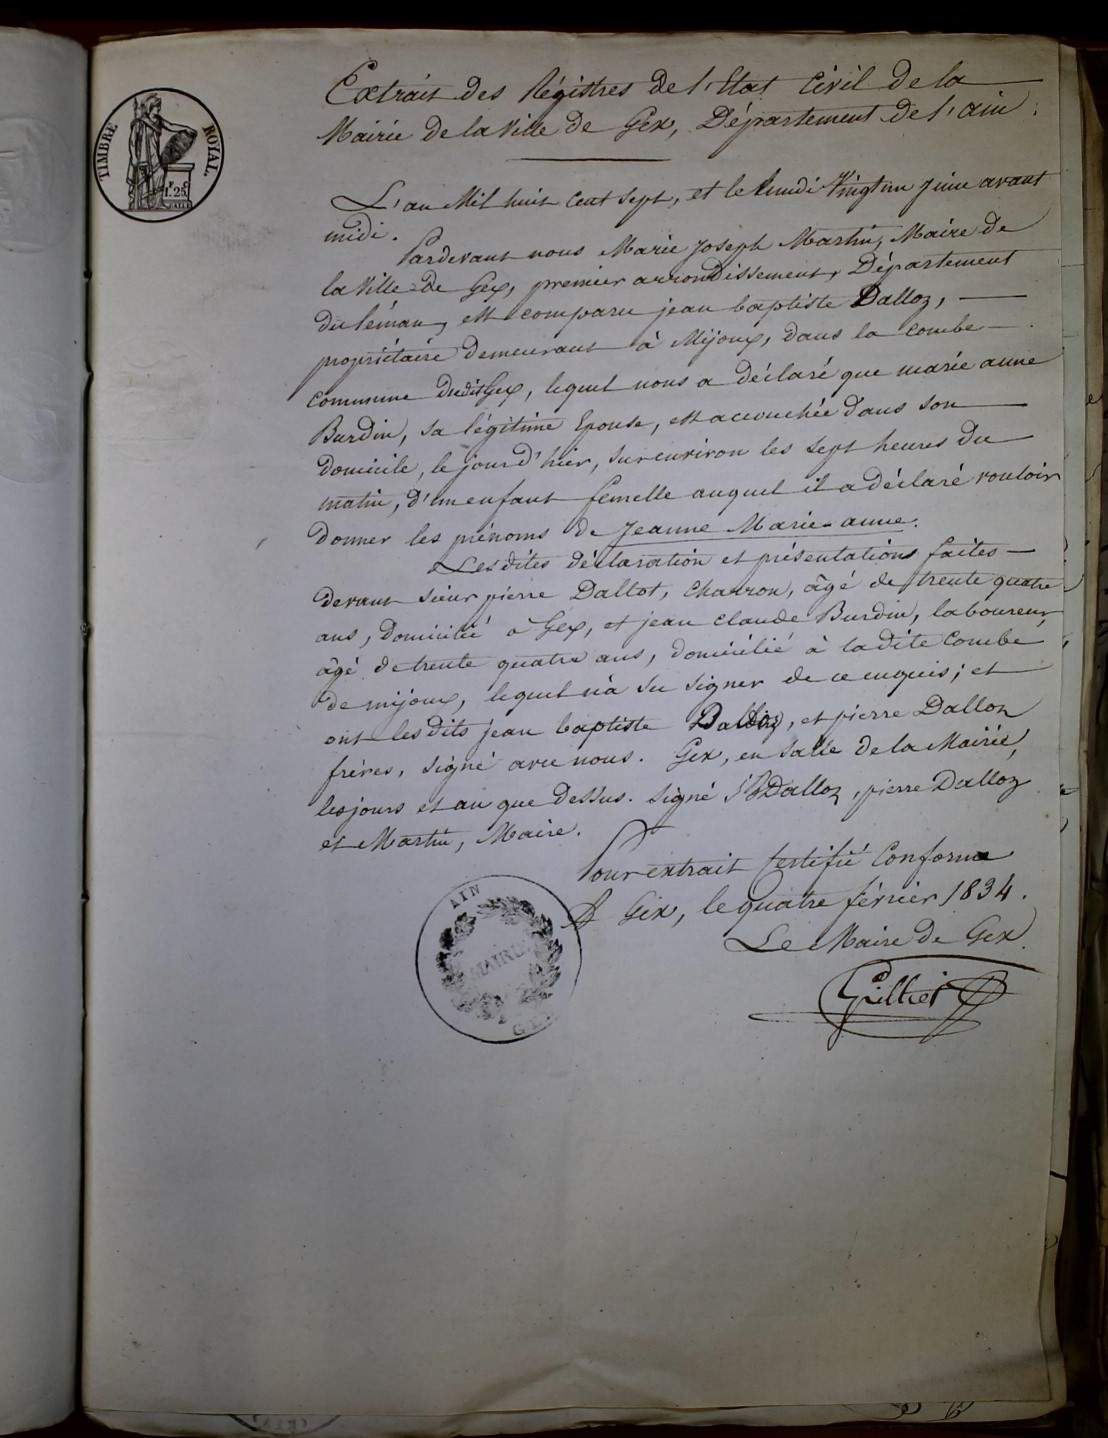 TIMBRE ROYAL.
1.25
Extrait des Régistres de l'Etat Civil de la
Mairie de la Ville de Gex, Département de l'ain.
L'an Mil huit Cent Sept, et le lundi Vingt un juin avant
midi.
Pardevant nous Marie Joseph Martin, Maire de
la Ville de Gex, premier arrondissement, Département
du léman, est comparu jean baptiste Dalloz,
propriétaire demeurant à Mijoux, dans la combe
commune dudit Gex, lequel nous a déclaré que marie anne
Burdin, sa légitime Epouse, est accouchée dans son
domicile, le jour d'hier, sur environ les sept heures du
matin, d'un enfant femelle auquel il a déclaré vouloir
donner les prénoms de Jeanne Marie-anne.
Lesdites déclaration et présentations faites
devant sieur pierre Dallot, charron, âgé de trente quatre
ans, domicilié à Gex, et jean claude Burdin, laboureur,
âgé de trente quatre ans, domicilié à ladite Combe
de mijoux, lequel n'a su signer de ce enquis; et
ont lesdits jean baptiste Dalloz, et pierre Dalloz
frères, signé avec nous. Gex, en salle de la Mairie,
les jours et an que dessus. signé J B Dalloz, pierre Dalloz
et Martin, Maire.
Pour extrait Certifié Conforme
A Gex, le quatre février 1834.
Le Maire de Gex.
AIN
MAIRIE
GEX